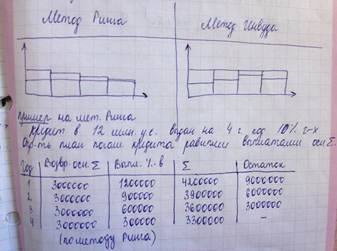 Метод Ринга Метод Инвуда
Пример на мет. Ринга
Кредит в 12 млн. у.е. выдан на 4 г. под 10% г-х
Опр-ть план погаш. кредита равными выплатами осн Σ.
Год Возвр осн. Σ Выпл. %-в Σ Остаток
1 3000000 1200000 4200000 9000000
2 3000000 900000 3900000 6000000
3 3000000 600000 3600000 3000000
4 3000000 300000 3300000 –
(по методу Ринга)